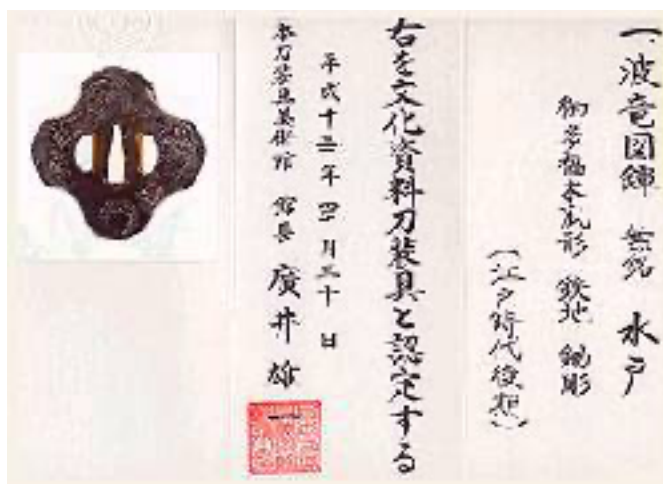 一、波竜図鐔 無銘 水戸
御多福木瓜形 鉄地 鋤彫
(江戸時代後期)
右を文化資料刀装具と認定する
平成十三年四月三十日
本刀装具美術館 館長 廣井雄一